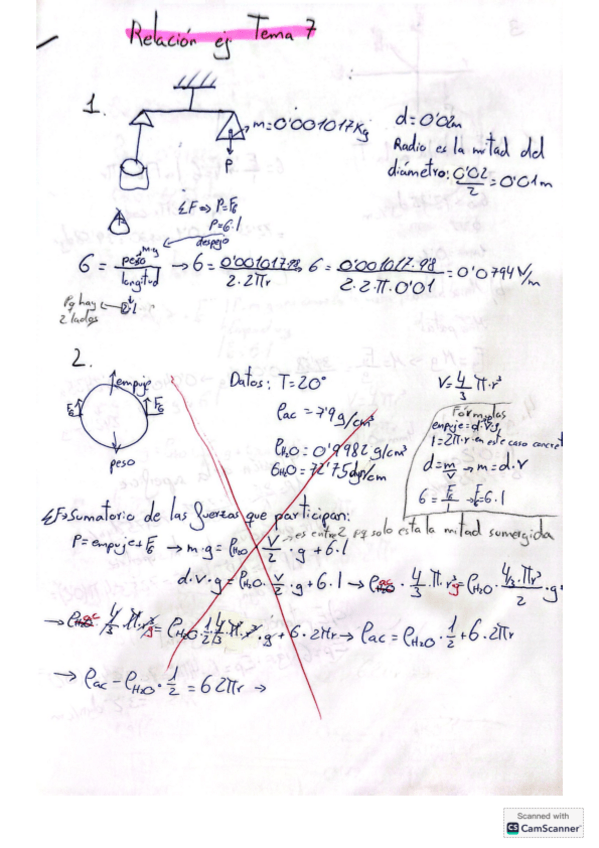 Relación ej Tema 7
1.
m=0'001017Kg
P
d=0'02m
Radio es la mitad del
diámetro: 0'02/2 = 0'01m
ΣF ⇒ P=Fσ
P=σ·l
despejo
σ = peso m·g / longitud 2·l → σ = 0'001017·9'8 / 2·2πr, σ = 0'001017·9'8 / 2·2·π·0'01 = 0'0794 N/m
Pq hay
2 lados
2.
empuje
Fσ
Fσ
peso
Datos: T=20°
ρac = 7'9 g/cm³
ρH₂O = 0'9982 g/cm³
σH₂O = 72'75 dyn/cm
V = 4/3 π·r³
Fórmulas
empuje = d·V·g
l = 2πr en este caso concret
d = m/V → m = d·V
σ = Fσ/l → F = σ·l
ΣF → Sumatorio de las fuerzas que participan:
P = empuje + Fσ → m·g = ρH₂O · V/2 · g + σ·l
→ es entre 2 pq solo esta la mitad sumergida
d·v·g = ρH₂O · V/2 · g + σ·l → ρac · 4/3 · π·r³ g = ρH₂O · 4/3 π r³ / 2 · g
→ ρac · 4/3 · π · r³ g = ρH₂O · 1/2 4/3 · π · r³ · g + σ·2πr → ρac = ρH₂O · 1/2 + σ·2πr
→ ρac − ρH₂O · 1/2 = σ2πr →
Scanned with
CS CamScanner